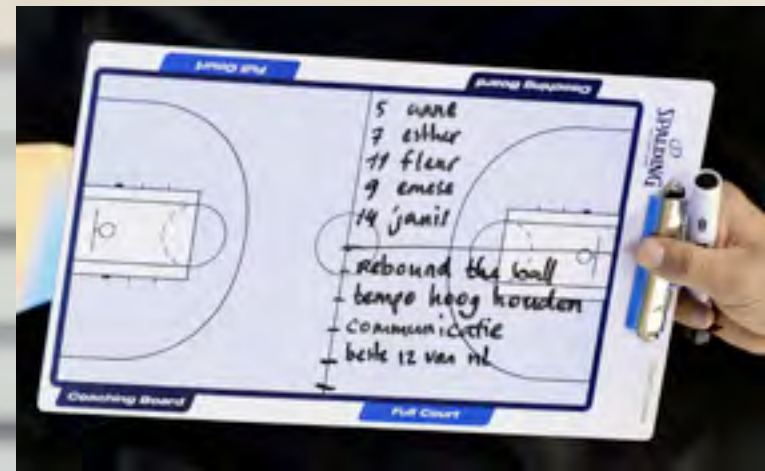 Full Court
Coaching Board
SPALDING
5 anne
7 esther
11 fleur
9 emese
14 janis
- rebound the ball
- tempo hoog houden
- communicatie
- beste 12 van nl
-
Coaching Board
Full Court